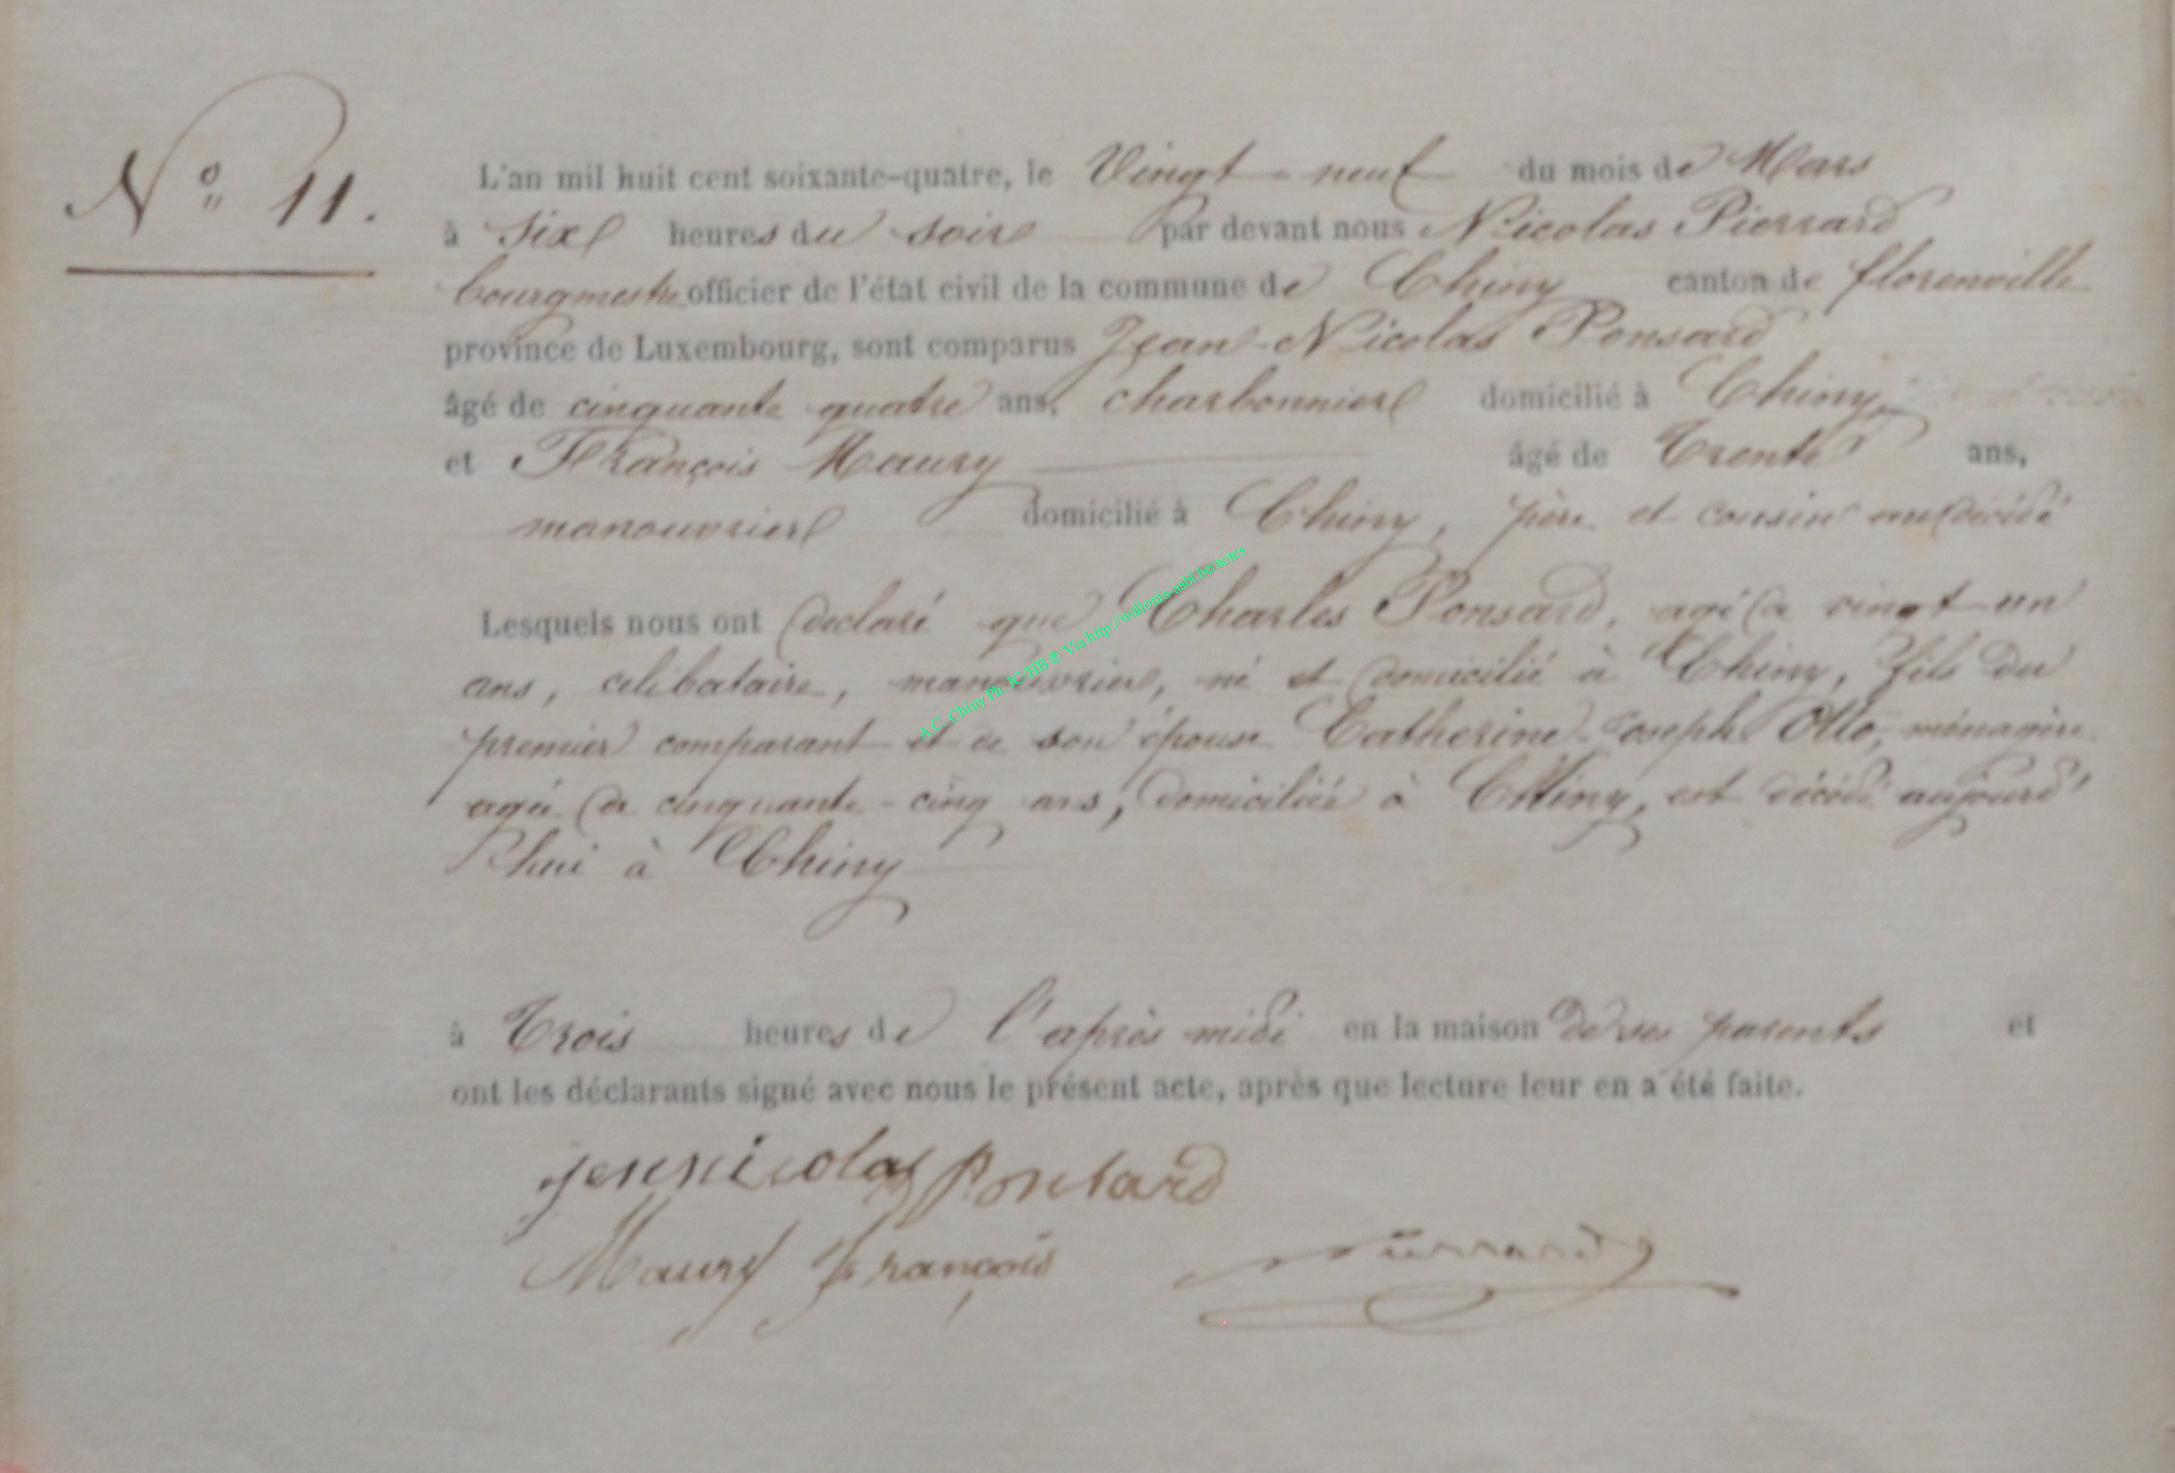 N° 11.
L'an mil huit cent soixante-quatre, le Vingt-neuf du mois de Mars
à Six heures du soir par devant nous Nicolas Pierrard
bourgmestre officier de l'état civil de la commune de Chiny canton de florenville
province de Luxembourg, sont comparus Jean-Nicolas Ponsard
âgé de cinquante quatre ans, charbonnier domicilié à Chiny,
et François Maury âgé de Trente ans,
manouvrier domicilié à Chiny, père et cousin au décédé
Lesquels nous ont declaré que Charles Ponsard, agé de vingt-un
ans, celibataire, manouvrier, né et domicilié à Chiny, fils du
premier comparant et de son épouse Catherine-Joseph Otto, ménagère
agée de cinquante-cinq ans, domiciliée à Chiny, est décédé aujourd'
hui à Chiny
à Trois heures de l'après midi en la maison de ses parents et
ont les déclarants signé avec nous le présent acte, après que lecture leur en a été faite.
jennicolas Ponsard
Maury François Pierrard
A.C. Chiny Ph. JC/HB & Via http://wallonia-asbl.be/actes